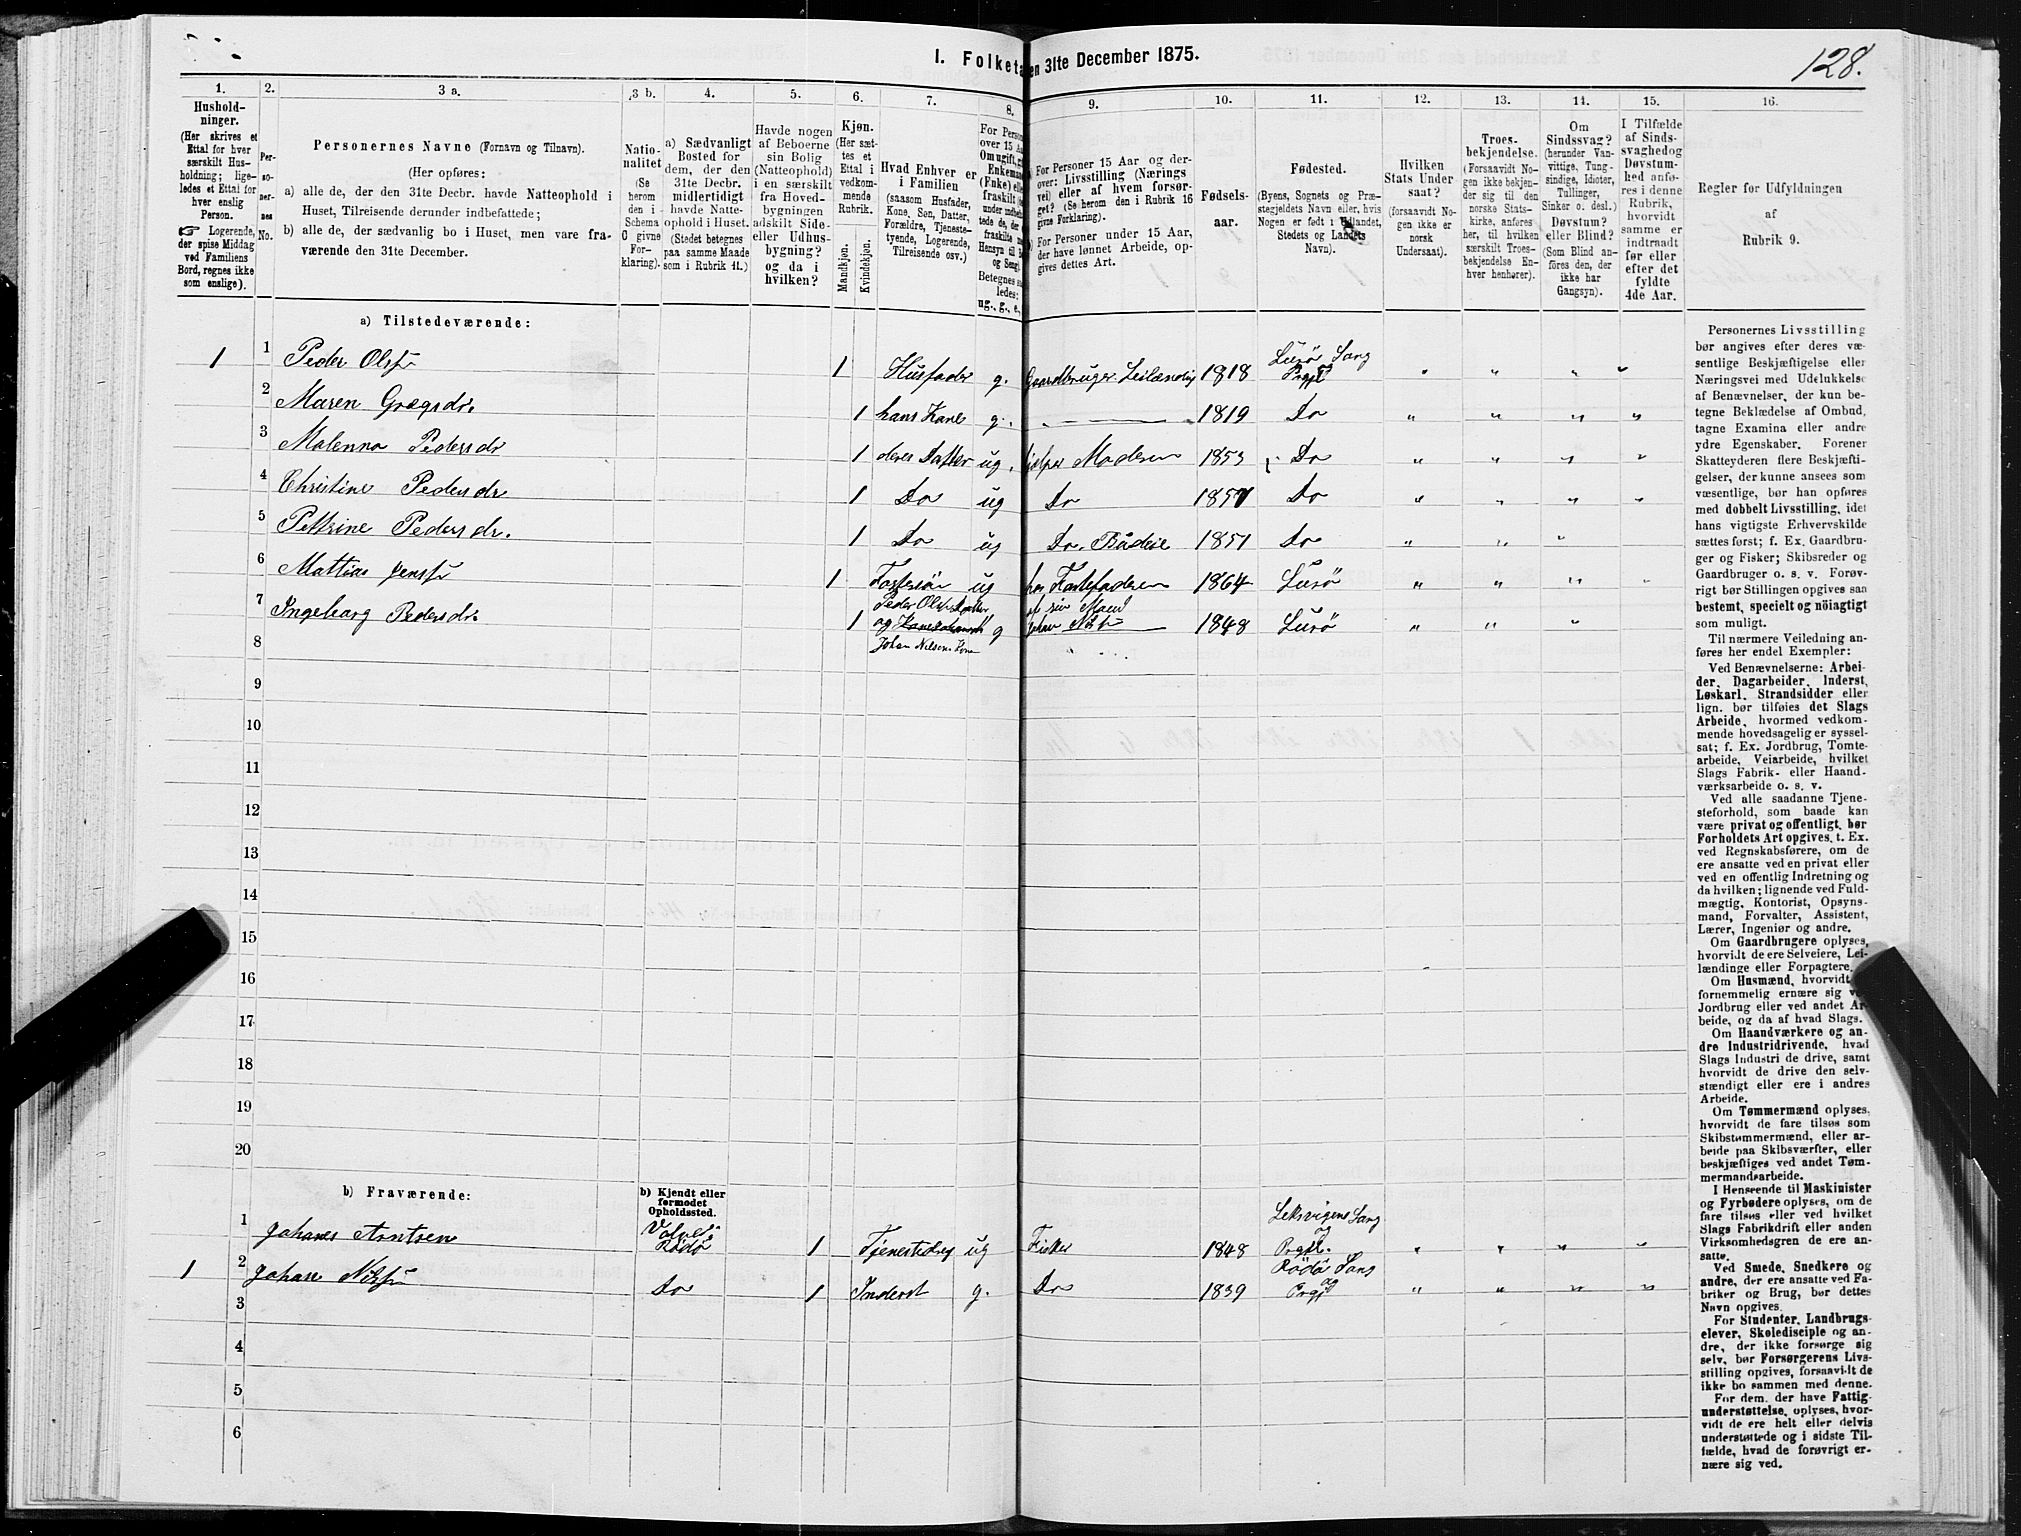 I. Folketa en 31te December 1875.
128.
1.
Hushold-
ninger.
(Her skrives et
Ettal for hver
særskilt Hus-
holdning; lige-
ledes et Ettal for
hver enslig
Person.
☞ Logerende,
der spise Middag
ved Familiens
Bord, regnes ikke
som enslige).
2.
Per-
so-
ner-
nes
No.
3 a.
Personernes Navne (Fornavn og Tilnavn).
(Her opføres:
a) alle de, der den 31te Decbr. havde Natteophold i
Huset, Tilreisende derunder indbefattede;
b) alle de, der sædvanlig bo i Huset, men vare fra-
værende den 31te December.
3 b.
Natio-
nalitet
(Se
herom
den i
Schema
O givne
For-
klaring).
4.
a) Sædvanligt
Bosted for
dem, der den
31te Decbr.
midlertidigt
havde Natte-
ophold i Huset.
(Stedet betegnes
paa samme Maade
som i Rubrik 11.)
5.
Havde nogen
af Beboerne
sin Bolig
(Natteophold)
i en særskilt
fra Hoved-
bygningen
adskilt Side-
eller Udhus-
bygning?
og da i
hvilken?
6.
Kjøn.
(Her sæt-
tes et
Ettal i
vedkom-
mende
Rubrik.
Mandkjøn.
Kvindekjøn.
7.
Hvad Enhver er
i Familien
(saasom Husfader,
Kone, Søn, Datter,
Forældre, Tjeneste-
tyende, Logerende,
Tilreisende osv.)
8.
For Person
over 15 Aa
Omugift, gi
Enkeman
(Enke) elle
fraskilt (de
under indbe
tede de, der
fraskilte m
Hensyn til B
og Seng).
Betegnes sa
ledes:
ug., g., e.,
9.
For Personer 15 Aar og der-
over: Livsstilling (Nærings
vei) eller af hvem forsør-
get? (Se herom den i Rubrik 16
givne Forklaring).
For Personer under 15 Aar,
der have lønnet Arbeide, op-
gives dettes Art.
10.
Fødsels-
aar.
11.
Fødested.
(Byens, Sognets og Præ-
stegjeldets Navn eller, hvis
Nogen er født i Udlandet,
Stedets og Landets
Navn).
12.
Hvilken
Stats Under
saat?
(forsaavidt No-
gen ikke er
norsk
Undersaat).
13.
Troes-
bekjendelse.
(Forsaavidt No-
gen ikke bekjen-
der sig til den
norske Stats-
kirke, anføres
her, til hvilken
særskilt Troes-
bekjendelse En-
hver henhører).
14.
Om
Sindssvag?
(herunder Van-
vittige, Tung-
sindige, Idioter,
Tullinger,
Sinker o. desl.)
Døvstum?
eller Blind?
(Som Blind an-
føres den, der
ikke har
Gangsyn).
15.
I Tilfælde
af Sinds-
svaghed og
Døvstum-
hed anfø-
res i denne
Rubrik,
hvorvidt
samme er
indtraadt
før eller
efter det
fyldte
4de Aar.
16.
Regler for Udfyldningen
af
Rubrik 9.
a) Tilstedeværende:
1 1 Peder Olsen 1 Husfader g. Gaardbruger Leilænding 1818 Lurö Sang Prgjl
2 Maren Gregsdr. 1 hans Kone g. 1819 Do
3 Malenna Pedersdr 1 deres Datter ug. hjelper Moderen 1853 Do
4 Christine Pedersdr 1 Do ug Do 1857 Do
5 Pettrine Pedersdr. 1 Do ug Do. 1851 Do
6 Mattias Jens 1 Fostersön ug hos Fosterfaderen 1864 Lurö
7 Ingeborg Pedersdr. 1 Peder Ols Datter og Johan Nilsens Kone g af sin Mand Johan Nils 1848 Lurö
8
9
10
11
12
13
14
15
16
17
18
19
20
b) Fraværende:
b) Kjendt eller
formodet
Opholdssted.
1 Johanes Arntsen Rödö 1 Tjenestedreg ug Fisker 1848 Leksvigens Sang og Prgjl.
1 2 Johan Nils Do 1 Inderst g. Do 1839 Rödö Sang og Prgjl
3
4
5
6
Personernes Livsstilling
bør angives efter deres væ-
sentlige Beskjæftigelse eller
Næringsvei med Udelukkelse
af Benævnelser, der kun be-
tegne Beklædelse af Ombud,
tagne Examina eller andre
ydre Egenskaber. Forener
Skatteyderen flere Beskjæfti-
gelser, der kunne ansees som
væsentlige, bør han opføres
med dobbelt Livsstilling, idet
hans vigtigste Erhvervskilde
sættes først; f. Ex. Gaardbru-
ger og Fisker; Skibsreder og
Gaardbruger o. s. v. Forøv-
rigt bør Stillingen opgives saa
bestemt, specielt og nöiagtigt
som muligt.
Til nærmere Veiledning an-
føres her endel Exempler:
Ved Benævnelserne: Arbei-
der, Dagarbeider, Inderst,
Løskarl, Strandsidder eller
lign. bør tilføies det Slags
Arbeide, hvormed vedkom-
mende hovedsagelig er syssel-
sat; f. Ex. Jordbrug, Tomte-
arbeide, Veiarbeide, hvilket
Slags Fabrik- eller Haand-
værksarbeide o. s. v.
Ved alle saadanne Tjene-
steforhold, som baade kan
være privat og offentligt, bør
Forholdets Art opgives, t. Ex.
ved Regnskabsførere, om de
ere ansatte ved en privat eller
ved en offentlig Indretning og
da hvilken; lignende ved Fuld-
mægtig, Kontorist, Opsyns-
mand, Forvalter, Assistent,
Lærer, Ingeniør og andre.
Om Gaardbrugere oplyses,
hvorvidt de ere Selveiere, Lei-
lændinge eller Forpagtere.
Om Husmænd, hvorvidt
fornemmelig ernære sig ve
Jordbrug eller ved andet Ar-
beide, og da af hvad Slags.
Om Haandværkere og an-
dre Industridrivende, hvad
Slags Industri de drive, samt
hvorvidt de drive den selv-
stændigt eller ere i andres
Arbeide.
Om Tømmermænd oplyses,
hvorvidt de fare tilsøs som
Skibstømmermænd, eller ar-
beide paa Skibsværfter, eller
beskjæftiges ved andet Tøm-
mermandsarbeide.
I Henseende til Maskinister
og Fyrbødere oplyses, om de
fare tilsøs eller ved hvilket
Slags Fabrikdrift eller anden
Virksomhedsgren de ere an-
satte.
Ved Smede, Snedkere og
andre, der ere ansatte ved Fa-
briker og Brug, bør dettes
Navn opgives.
For Studenter, Landbrugs-
elever, Skoledisciple og an-
dre, der ikke forsørge sig
selv, bør Forsørgerens Livs-
stilling opgives, forsaavidt de
ikke bo sammen med denne.
For dem, der have Fattig-
understøttelse, oplyses, hvor-
vidt de ere helt eller delvis
understøttede og i sidste Til-
fælde, hvad de forøvrigt er-
nære sig ved.